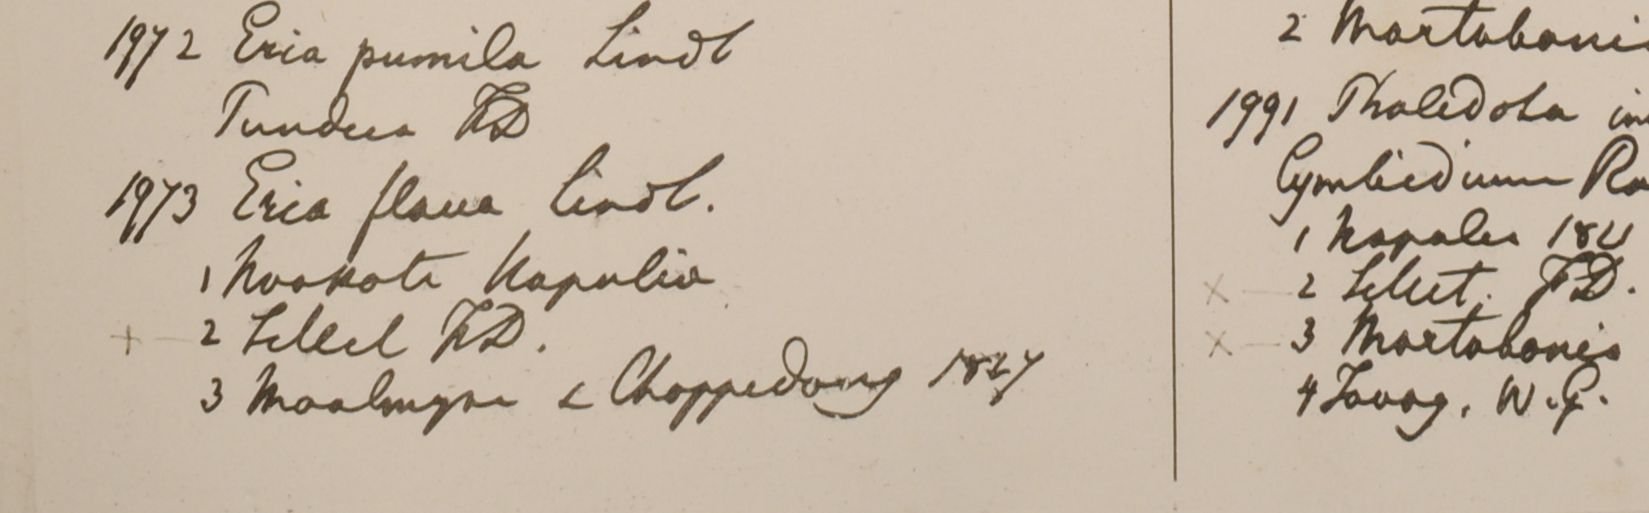 1972 Eria pumila Lindl
Pundua FD
1973 Eria flava Lindl.
1 Noakote Napalia
2 Sillet FD.
3 Moalmyne & Choppedong 1827
2 Martabania
1991 Pholidota im
Cymbidium
1 Napalia 1821
2 Sillet. FD.
3 Martabania
4 Tavoy. W.G.